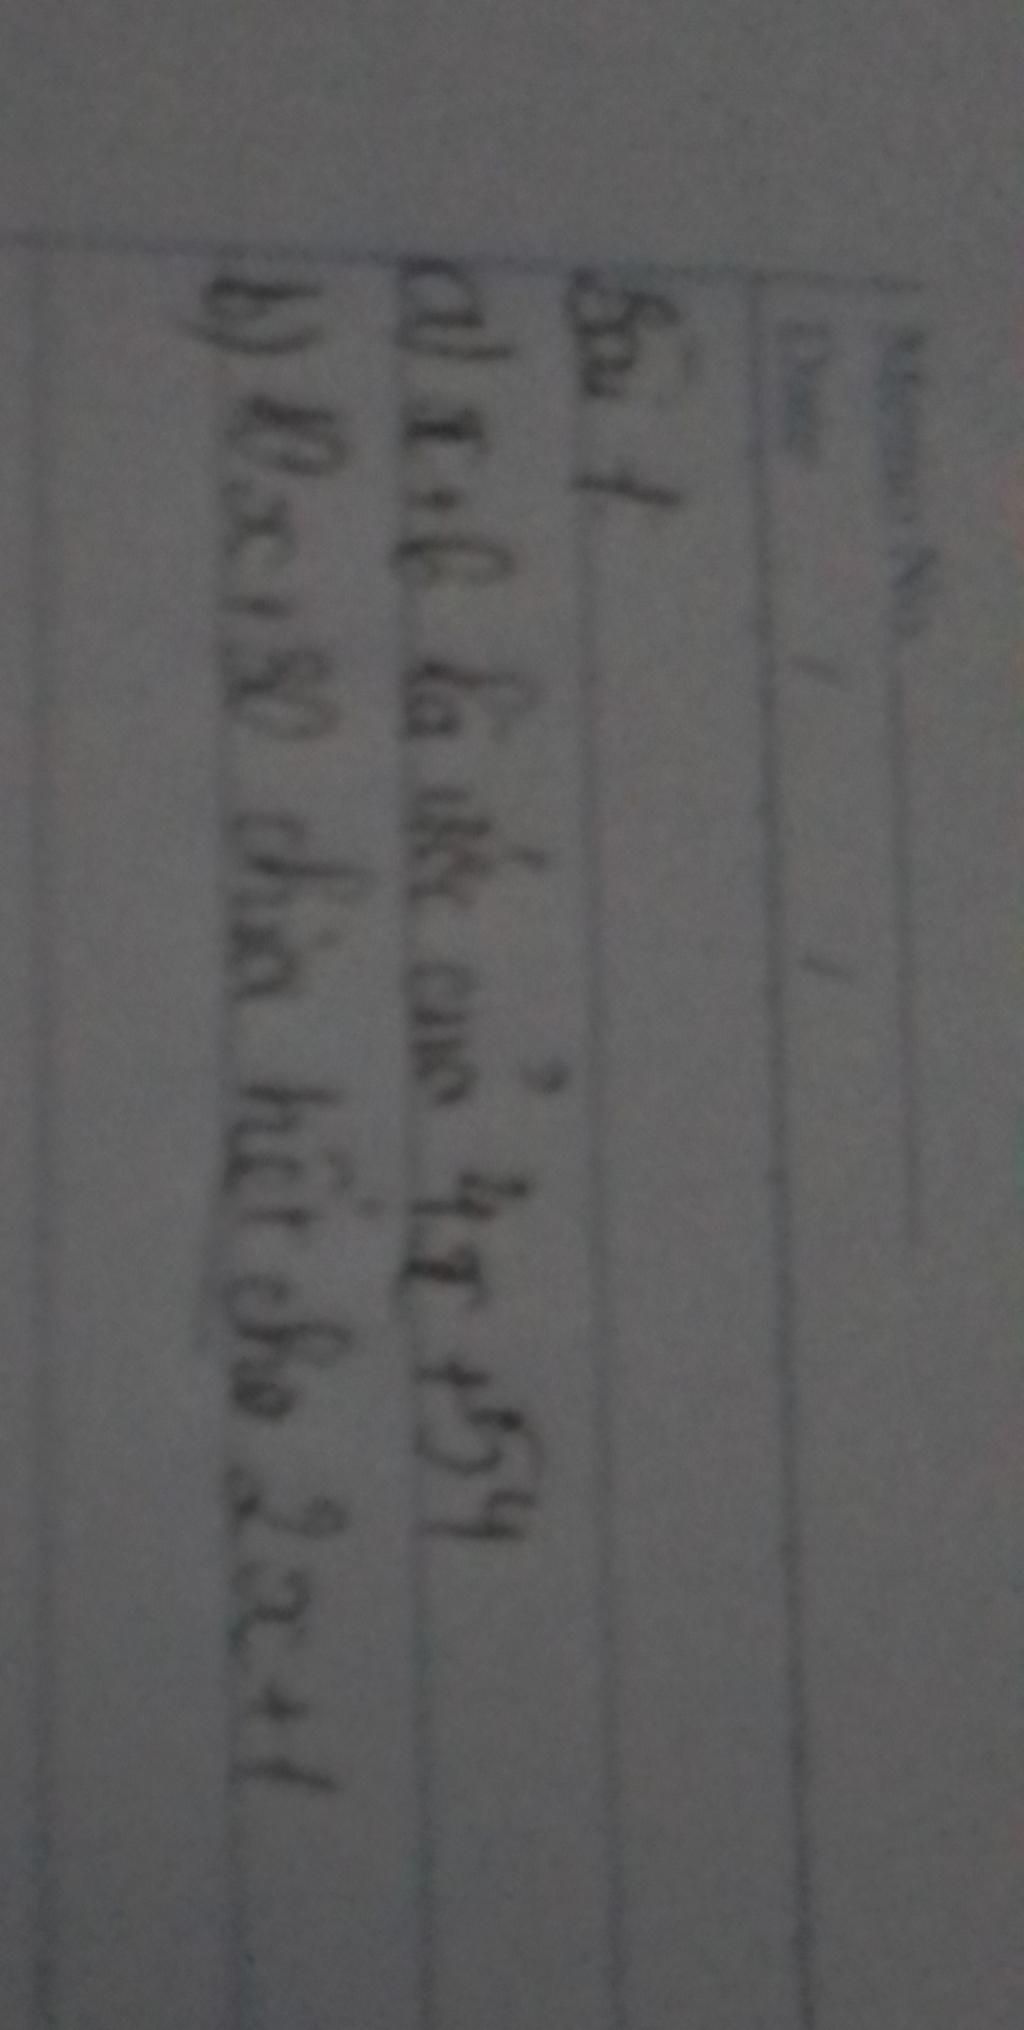 Memo No.
Date / /
Bài 1
a) x+6 là ước của 4x+54
b) 10x+80 chia hết cho 2x+1